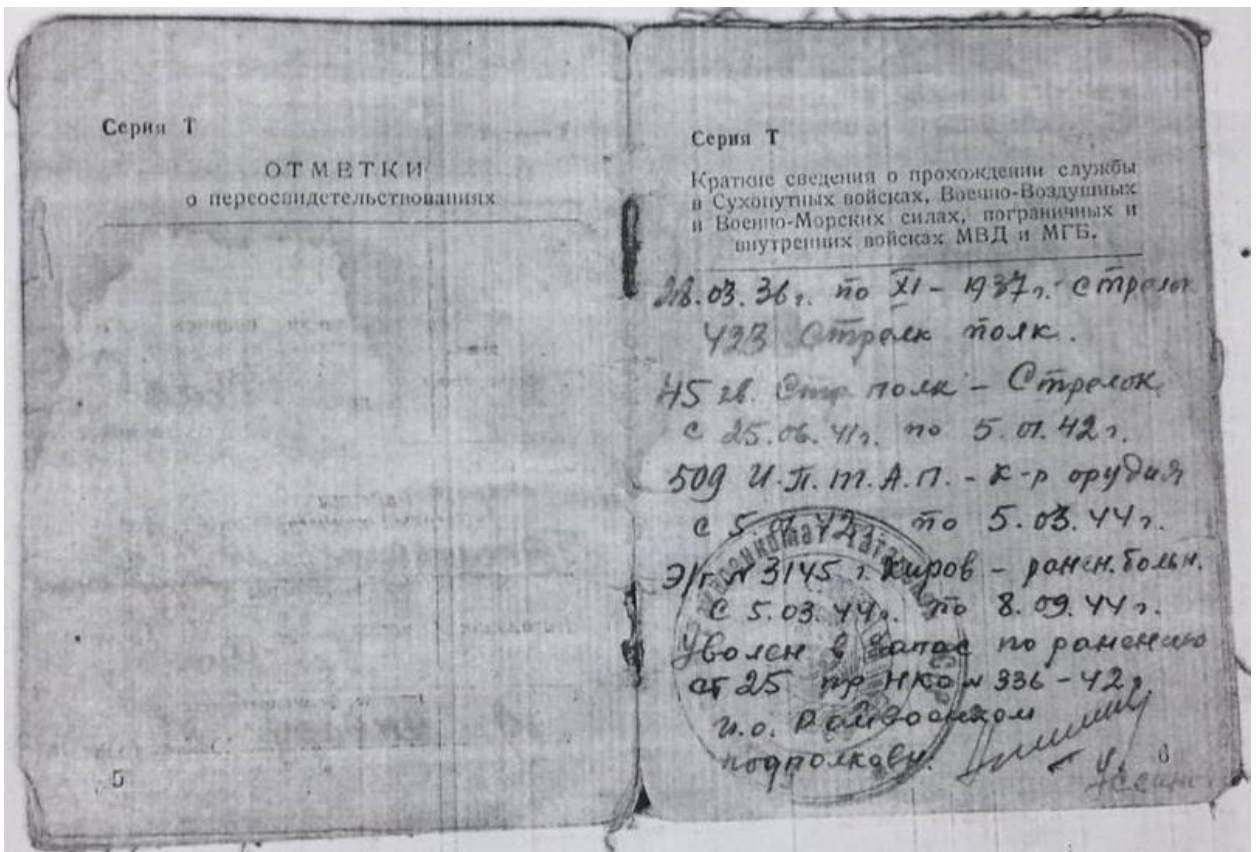 Серия Т
ОТМЕТКИ
о переосвидетельствованиях
5
Серия Т
Краткие сведения о прохождении службы
в Сухопутных войсках, Военно-Воздушных
и Военно-Морских силах, пограничных и
внутренних войсках МВД и МГБ.
28.03.36г. по XI-1937г. стрелок
423 Стрелк полк.
45 гв. Стр полк - Стрелок
с 25.06.41г. по 5.01.42г.
509 И.П.Т.А.П. - к-р орудия
с 5. 42 по 5.03.44г.
Э/г. N 3145 г. Киров - ранен. больн.
с 5.03.44г. по 8.09.44г.
Уволен в запас по ранению
ст 25 пр НКО N 336-42г.
и.о. Райвоенком
подполковн.
6